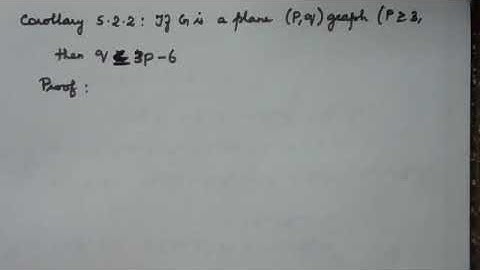 Corollary 5.2.2: If G is a plane (P,q) graph (P ≥ 3,
then q ≤ 3p-6
Proof: